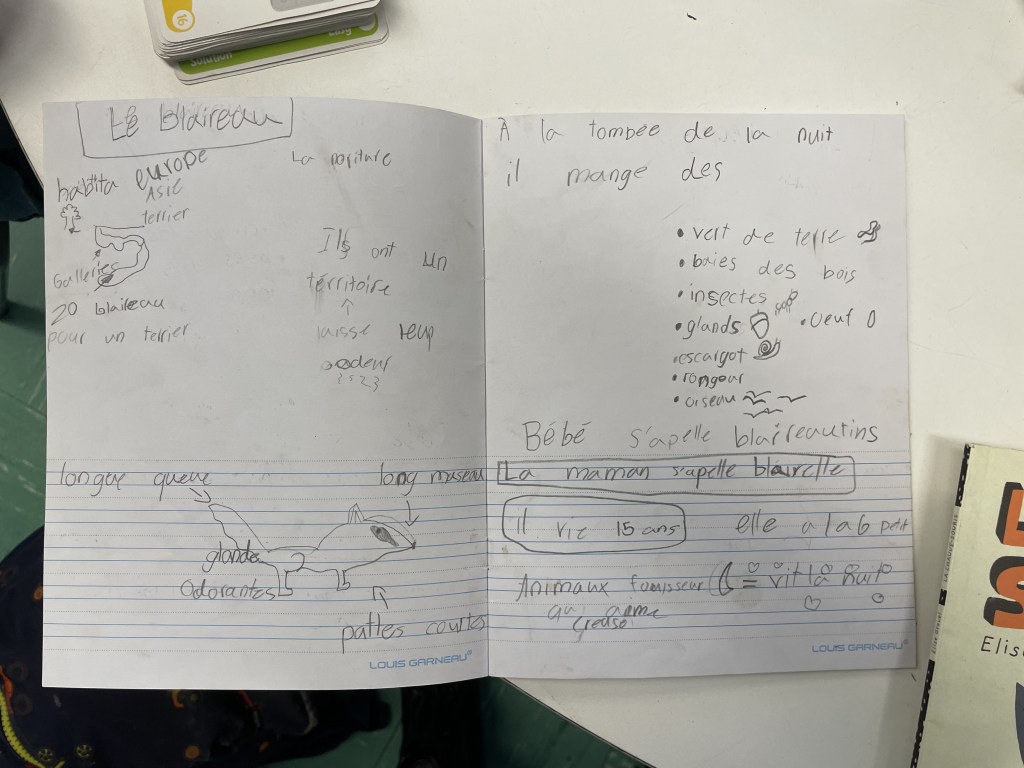 16
Solution
Le blaireau
habita europe
Asie
terrier
Galleries
20 blaireau
pour un terrier
La
Ils ont un
térritoire
laisse leup
odeur
longue queue
long museau
glande
odorantes
pattes courtes
LOUIS GARNEAU
À la tombée de la nuit
il mange des
• vert de terre
• baies des bois
• insectes
• glands • oeuf
• escargot
• rongeur
• oiseau
Bébé s'apelle blaireautins
La maman s'apelle blairelle
il vie 15 ans elle a 1 a 6 petit
Animaux fouisseur = vit la nuit
creuse
LOUIS GARNEAU
Elis